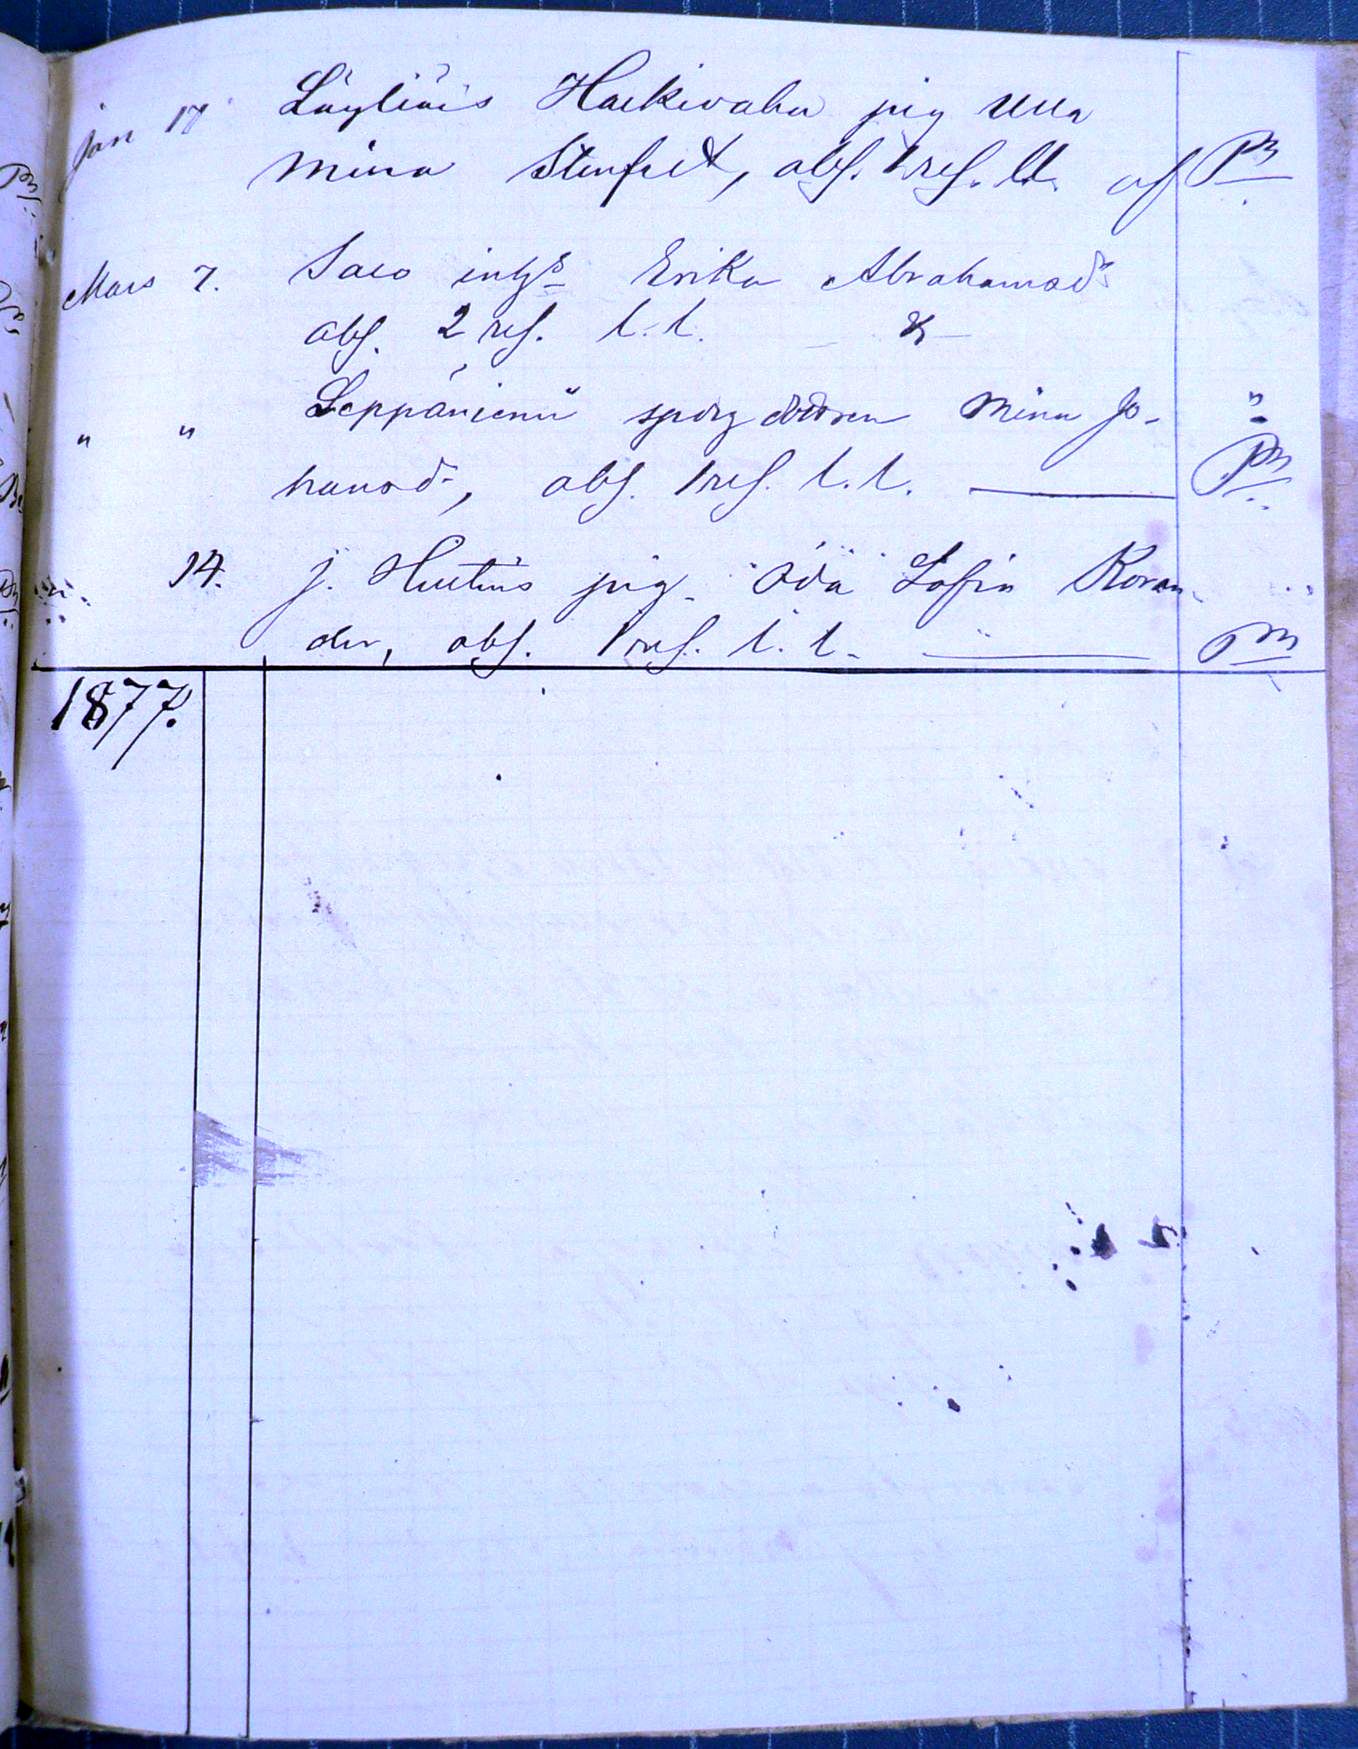 Jan 17 Löyliäis Haukivaha pig Ulla
Mina Stenfelt, abs. 1 res. l.l. af Pm
Mars 7. Salo inhs Erika Abrahamsd
abs. 2 res. l.l.
" " Leppäniemi Mina Jo- "
hansd, abs. 1 res. l.l. Pm
" 14. J. Huttus pig. Oda Sofia Koran-
der, abs. 1 res. l.l. Pm
1877.